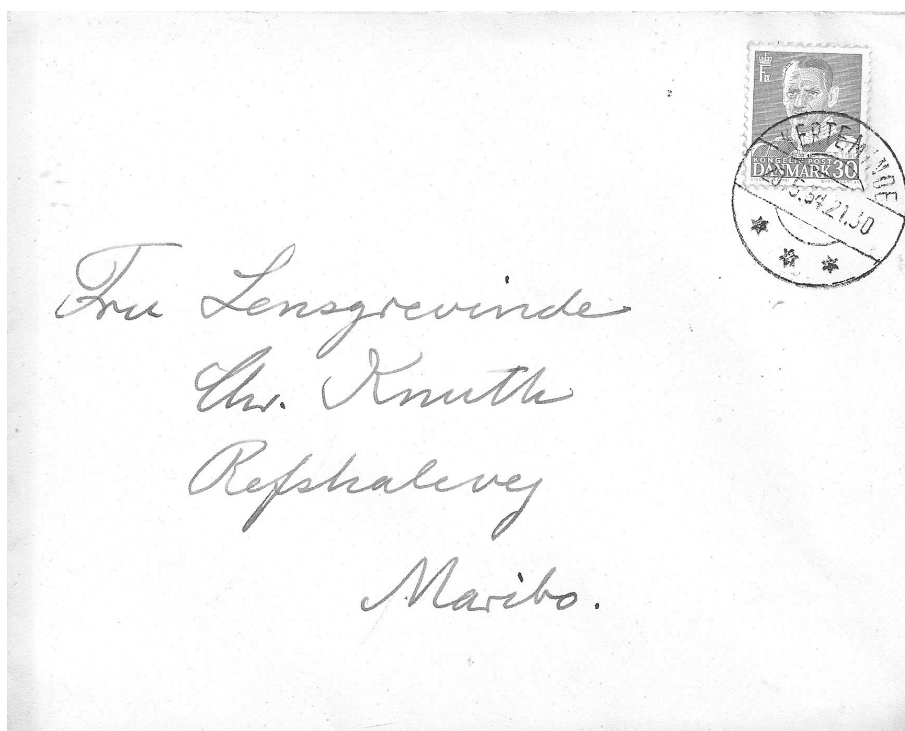 KONGELIG POST
DANMARK 30
KERTEMINDE
5.54.21.30
Fru Lensgrevinde
Chr. Knuth
Refshalevej
Maribo.